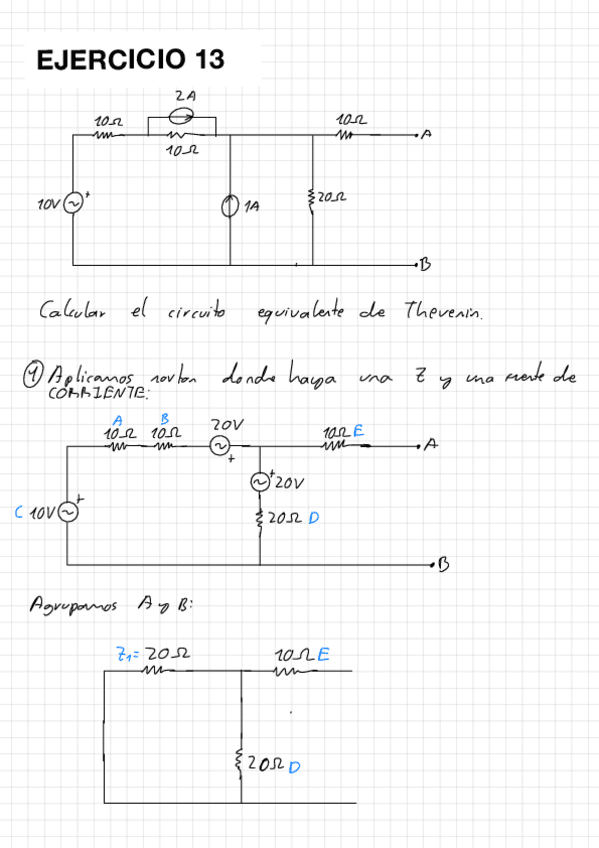 EJERCICIO 13
2A
10Ω
10Ω
10Ω
A
10V
+
1A
20Ω
B
Calcular el circuito equivalente de Thevenin.
1 Aplicamos norton donde haya una Z y una fuente de
CORRIENTE:
A B 20V
10Ω 10Ω
+
10Ω E
A
C 10V
+
+
20V
20Ω D
B
Agrupamos A y B:
Z1= 20Ω
10Ω E
20Ω D